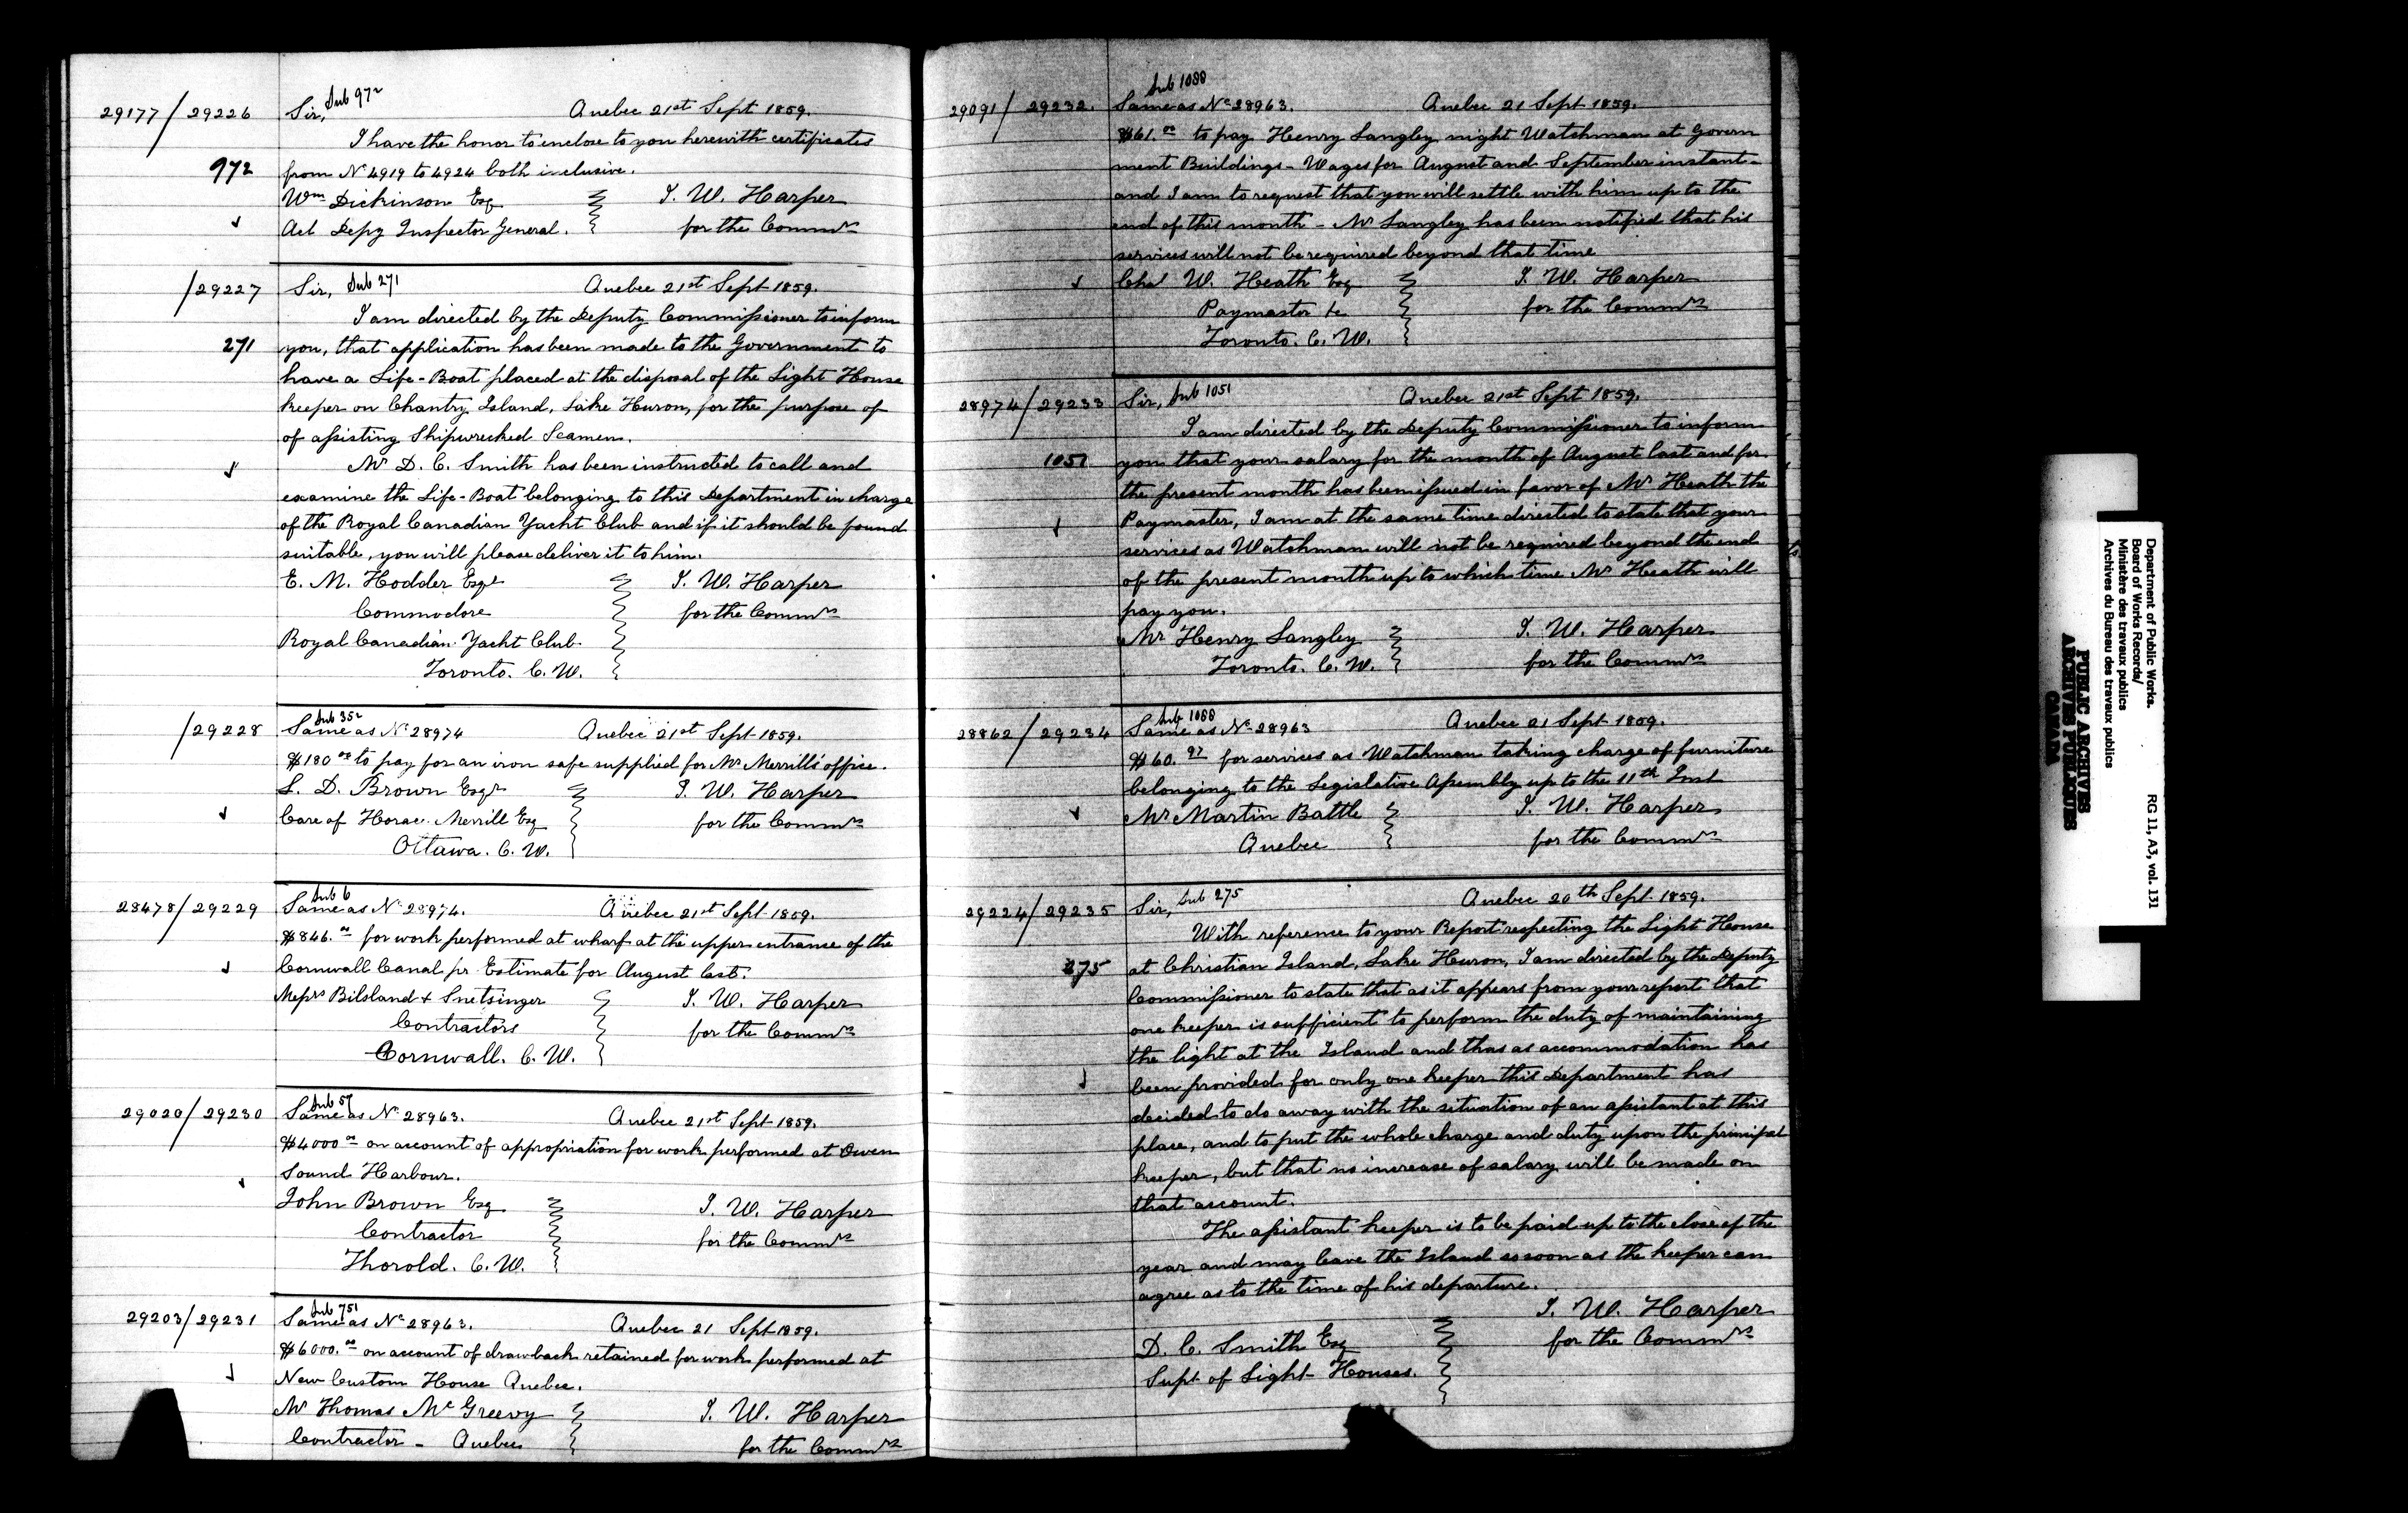 29177/29226 Sir, Sub 972 Quebec 21st Sept 1859.
I have the honor to enclose to you herewith certificates
972 from No 4919 to 4924 both inclusive.
Wm Dickinson Esq J. W. Harper
Act Depy Inspector General. for the Commrs
/29227 Sir, Sub 271 Quebec 21st Sept 1859.
I am directed by the Deputy Commissioner to inform
271 you, that application has been made to the Government to
have a Life-Boat placed at the disposal of the Light House
keeper on Chantry Island, Lake Huron, for the purpose of
of assisting Shipwrecked Seamen.
Mr D. C. Smith has been instructed to call and
examine the Life-Boat belonging to this Department in charge
of the Royal Canadian Yacht Club and if it should be found
suitable, you will please deliver it to him.
E. M. Hodder Esqr J. W. Harper
Commodore for the Commrs
Royal Canadian Yacht Club
Toronto. C. W.
Sub 352
/29228 Same as No 28974 Quebec 21st Sept 1859.
$180.00 to pay for an iron safe supplied for Mr Merrill's office.
L. D. Brown Esqr J. W. Harper
Care of Horace Merrill Esq for the Commrs
Ottawa. C. W.
Sub 6
28478/29229 Same as No 28974. Quebec 21st Sept 1859.
$846.00 for work performed at wharf at the upper entrance of the
Cornwall Canal pr Estimate for August last.
Messrs Bilsland & Snetsinger J. W. Harper
Contractors for the Commrs
Cornwall. C. W.
Sub 57
29020/29230 Same as No 28963. Quebec 21st Sept 1859.
$4000.00 on account of appropriation for work performed at Owen
Sound Harbour.
John Brown Esq J. W. Harper
Contractor for the Commrs
Thorold. C. W.
Sub 751
29203/29231 Same as No 28963. Quebec 21 Sept 1859.
$6000.00 on account of drawback retained for work performed at
New Custom House Quebec.
Mr Thomas McGreevy J. W. Harper
Contractor - Quebec for the Commrs
Sub 1088
29091/29232. Same as No 28963. Quebec 21 Sept 1859.
$61.00 to pay Henry Langley night Watchman at Govern
ment Buildings - Wages for August and September instant -
and I am to request that you will settle with him up to the
end of this month - Mr Langley has been notified that his
services will not be required beyond that time
Chas W. Heath Esq J. W. Harper
Paymaster &c for the Commrs
Toronto. C. W.
28974/29233 Sir, Sub 1051 Quebec 21st Sept 1859.
I am directed by the Deputy Commissioner to inform
1051 you that your salary for the month of August last and for
the present month has been issued in favor of Mr Heath the
Paymaster, I am at the same time directed to state that your
services as Watchman will not be required beyond the end
of the present month up to which time Mr Heath will
pay you.
Mr Henry Langley J. W. Harper
Toronto. C. W. for the Commrs
Sub 1088
28862/29234 Same as No 28963 Quebec 21 Sept 1859.
$60.97 for services as Watchman taking charge of furniture
belonging to the Legislative Assembly up to the 11th Inst
Mr Martin Battle J. W. Harper
Quebec for the Commrs
29224/29235 Sir, Sub 275 Quebec 20th Sept. 1859.
With reference to your Report respecting the Light House
275 at Christian Island, Lake Huron, I am directed by the Deputy
Commissioner to state that as it appears from your report that
one keeper is sufficient to perform the duty of maintaining
the light at the Island and thas as accommodation has
been provided for only one keeper this Department has
decided to do away with the situation of an assistant at this
place, and to put the whole charge and duty upon the principal
keeper, but that no increase of salary will be made on
that account.
The assistant keeper is to be paid up to the close of the
year and may leave the Island so soon as the keeper can
agree as to the time of his departure.
J. W. Harper
D. C. Smith Esq for the Commrs
Supt of Light Houses.
Department of Public Works. RG 11, A3, vol. 131
Board of Works Records/
Ministère des travaux publics
Archives du Bureau des travaux publics
PUBLIC ARCHIVES
ARCHIVES PUBLIQUES
CANADA